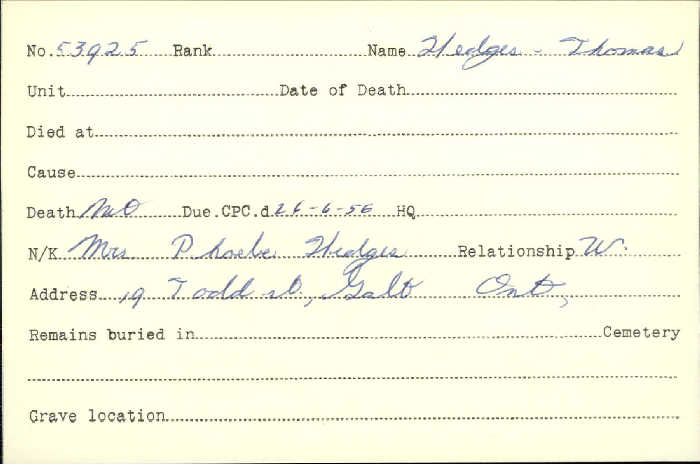 No. 53925 Rank Name Hedges - Thomas
Unit Date of Death
Died at
Cause
Death NLD Due CPC.d 26-6-56 HQ
N/K Mrs Phoebe Hedges Relationship W.
Address 19 Todd St, Galt Ont,
Remains buried in Cemetery
Grave location